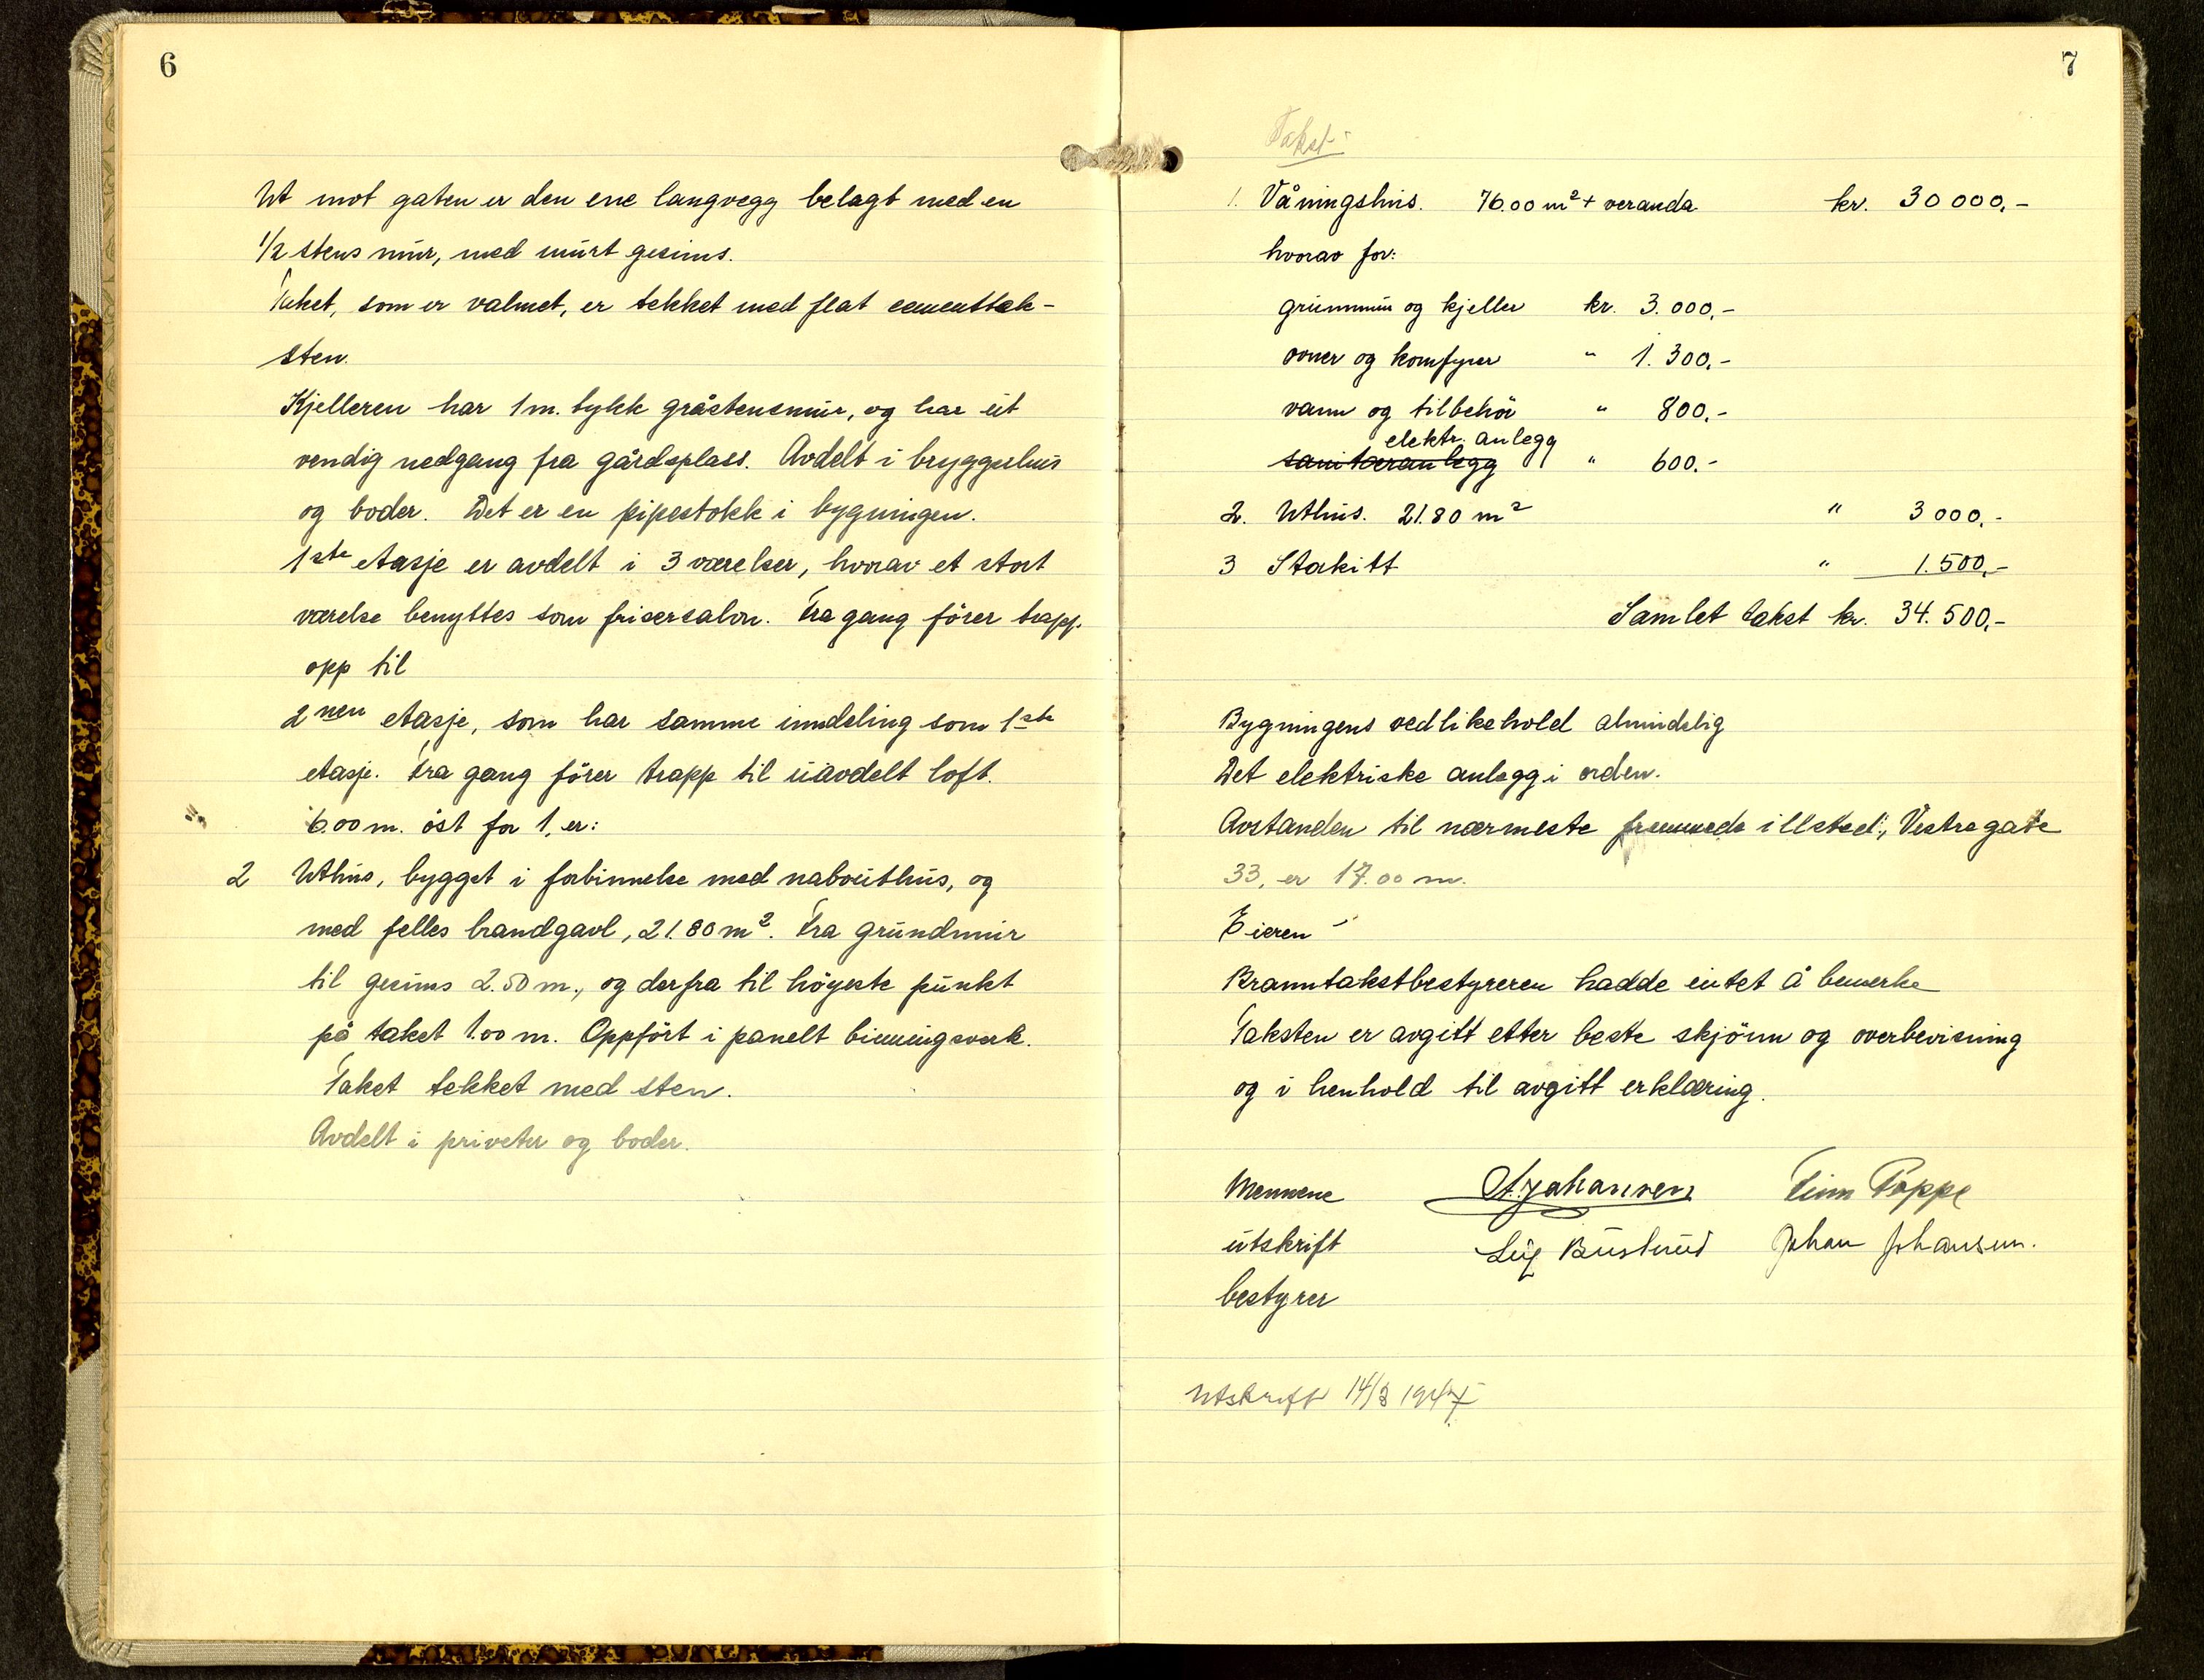 6
Ut mot gaten er den ene langvegg belagt med en
1/2 stens mur, med murt gesims.
Taket, som er valmet, er tekket med flat cementtak-
sten.
Kjelleren har 1 m. tykk gråstensmur, og har ut
vendig nedgang fra gårdsplass. Avdelt i bryggerhus
og boder. Det er en pipestokk i bygningen.
1ste etasje er avdelt i 3 værelser, hvorav et stort
værelse benyttes som frisersalon. Fra gang förer trapp
opp til
2nen etasje, som har samme inndeling som 1ste
etasje. Fra gang förer trapp til uavdelt loft.
6.00 m. öst for 1, er:
2 Uthus, bygget i forbinnelse med nabouthus, og
med felles brandgavl, 21.80 m². Fra grundmur
til gesims 2.50 m., og derfra til höyeste punkt
på taket 1.00 m. Oppfört i panelt binningsverk.
Taket tekket med sten.
Avdelt i priveter og boder.
7
Takst:
1. Våningshus. 76.00 m² + veranda kr. 30 000,-
hvorav for:
grunnmur og kjeller kr. 3.000,-
ovner og komfyrer " 1.300,-
vann og tilbehör " 800,-
elektr. anlegg
sanitæranlegg " 600.-
2. Uthus. 21.80 m² " 3 000,-
3 Stakitt " 1.500,-
Samlet takst kr. 34.500,-
Bygningens vedlikehold almindelig
Det elektriske anlegg i orden.
Avstanden til nærmeste fremmede illsted, Vestregate
33, er 17.00 m.
Eieren
Branntakstbestyreren hadde intet å bemerke
Taksten er avgitt etter beste skjönn og overbevisning
og i henhold til avgitt erklæring.
Mennene A. Johansen Finn Poppe
utskrift Johan Johansen.
bestyrer
Utskrift 14/3 1947